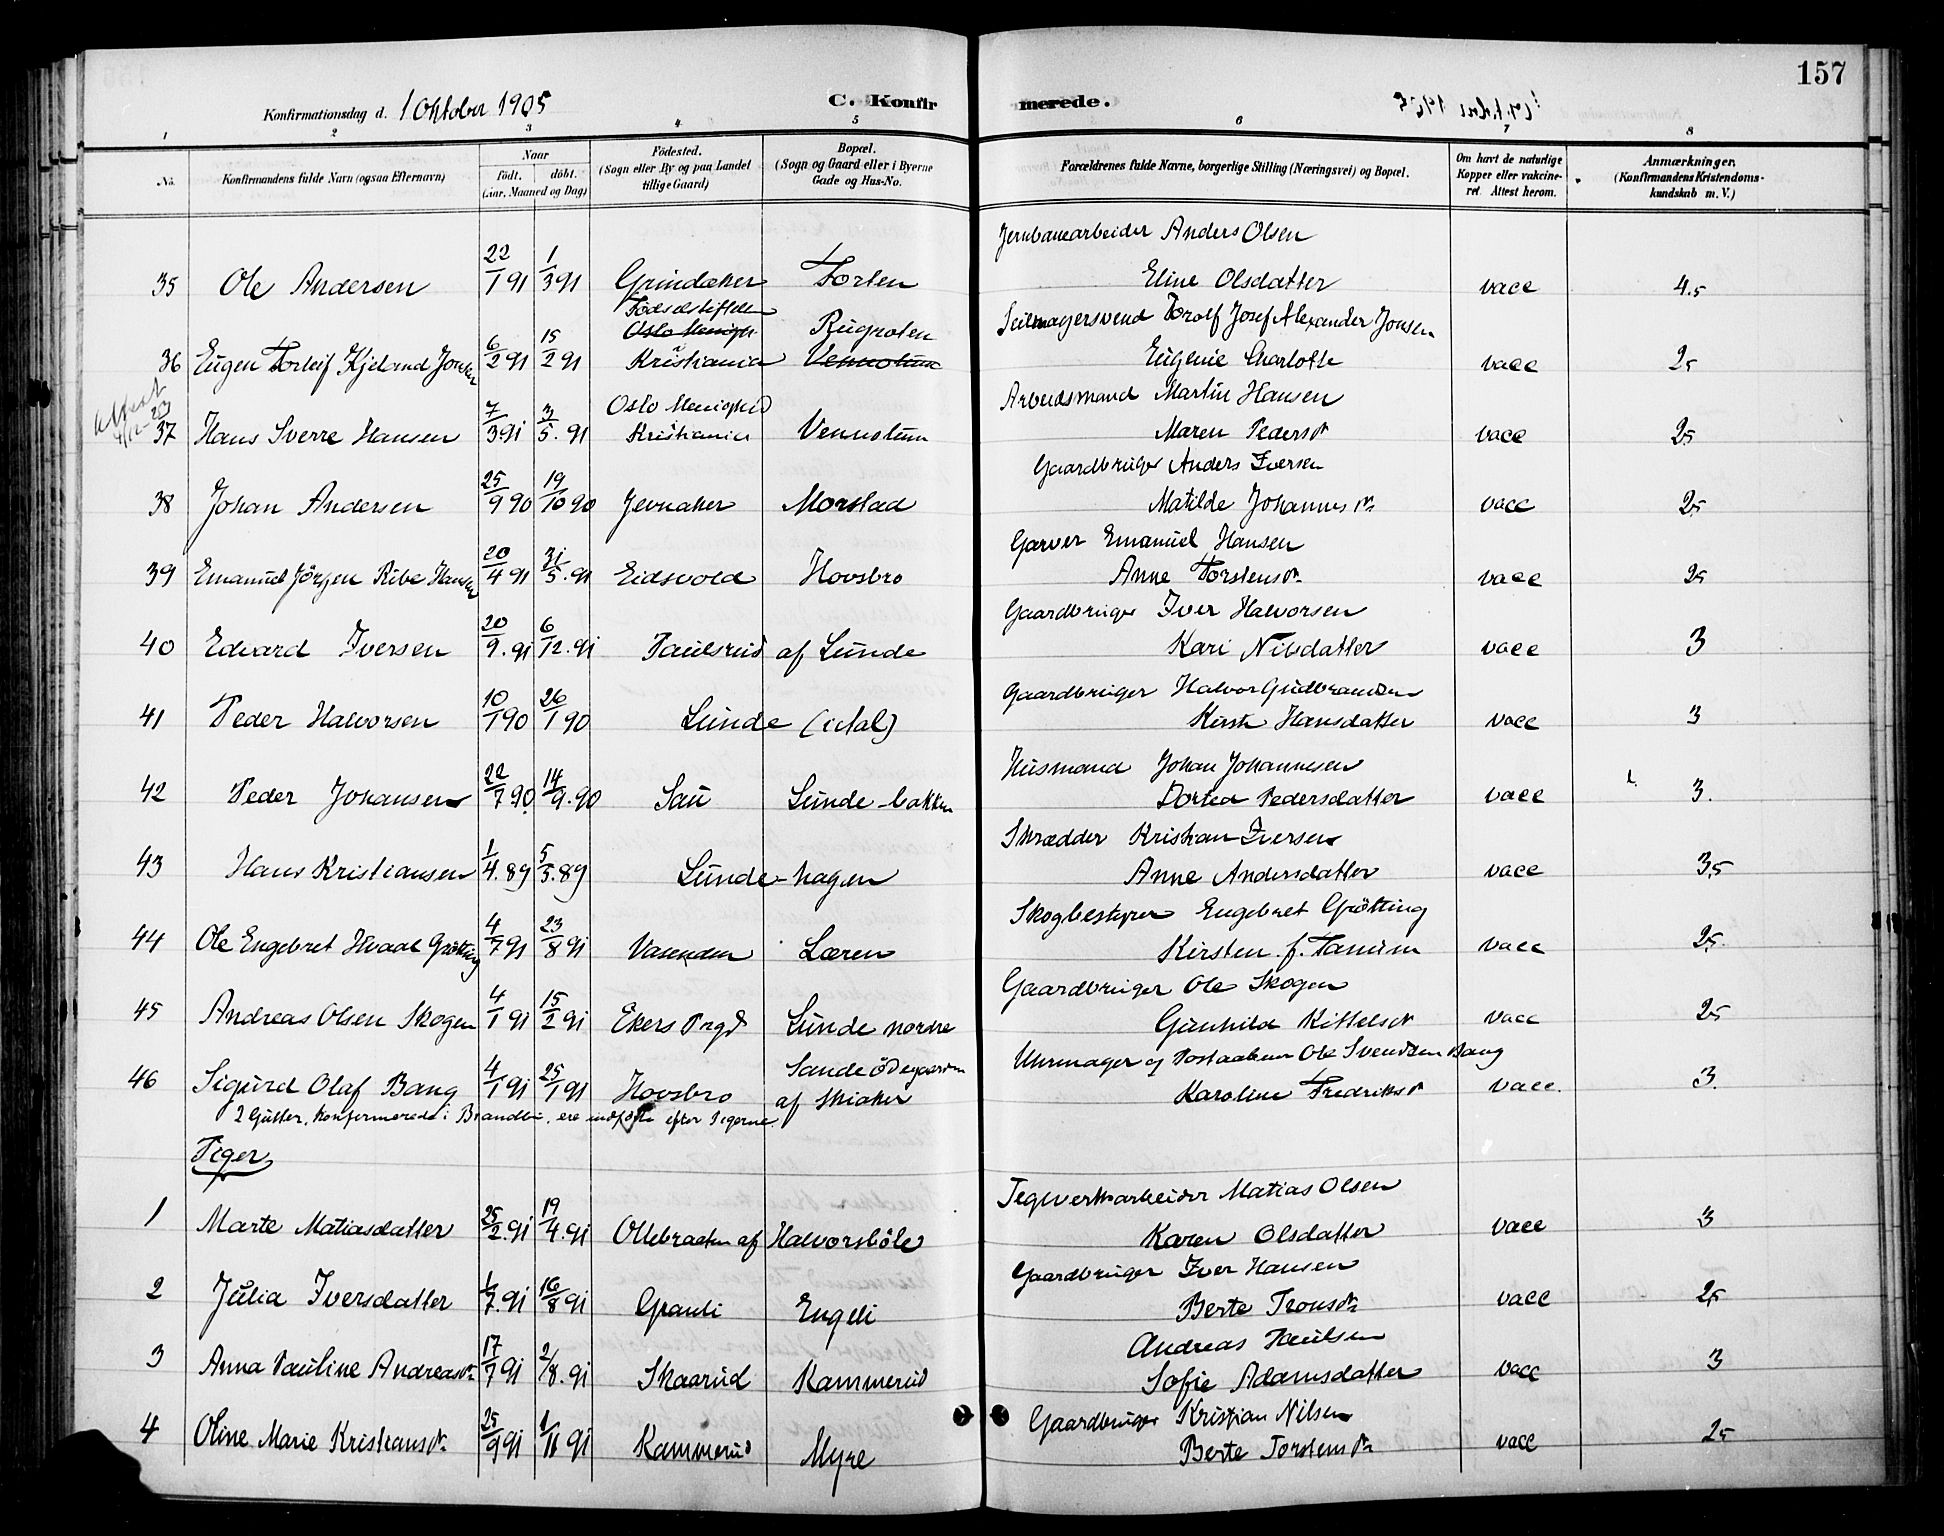 157
Konfirmationsdag d. 1 Oktober 1905
C. Konfirmerede.
1 2 3 4 5 6 7 8
No.
Konfirmandens fulde Navn (ogsaa Efternavn)
Naar
født. døbt.
(Aar, Maaned og Dag)
Fødested.
(Sogn eller By og paa Landet
tillige Gaard)
Bopæl.
(Sogn og Gaard eller i Byerne
Gade og Hus-No.
Forældrenes fulde Navne, borgerlige Stilling (Næringsvei) og Bopæl.
Om havt de naturlige
Kopper eller vakcine-
ret. Attest herom.
Anmærkninger.
(Konfirmandens Kristendoms-
kundskab m. V.)
Jernbanearbeider Anders Olsen
35 Ole Andersen 22/1 91 1/3 91 Grindaker Torten Eline Olsdatter vacc 4.5
Fødselsstiftelsen
Oslo Menighed Rugroten Seilmagersvend Torolf Josef Alexander Jonsen
36 Eugen Torleif Kjeland Jonsen 6/2 91 15/2 91 Kristiania Vennotunn Eugenie Charlotte vacc 25
Attest
4/12-23
Oslo Menighed Arbeidsmand Martin Hansen
37 Hans Sverre Hansen 7/3 91 3/5.91 Kristiania Vennotunn Maren Pedersdr vacc 25
Gaardbruger Anders Iversen
38 Johan Andersen 25/9 90 19/10 90 Jevnaker Morstad Matilde Johannesdr. vacc 25
Garver Emanuel Hansen
39 Emanuel Jörgen Ribe Hansen 20/4 91 31/5.91 Eidsvold Hovsbro Anne Torstensdr. vacc 25
Gaardbruger Iver Halvorsen
40 Edvard Iversen 20/9.91 6/12.91 Paulsrud af Lunde Kari Nilsdatter vacc 3
Gaardbruger Halvor Gudbrandsen
41 Peder Halvorsen 10/1 90 26/1 90 Lunde Kirsti Hansdatter vacc 3
Husmand Johan Johannesen
42 Peder Johansen 22/7 90 14/9.90 Sau Lunde-bakken Dortea Pedersdatter vacc 3.
Skrædder Kristian Iversen
43 Hans Kristiansen 1/4.89 5/5.89 Lunde-hagen Anne Andersdatter vacc 35
Skogbestyrer Engebret Grötting
44 Ole Engebret Hvaal Grötting 4/7 91 23/8 91 Vasenden Læren Kirsten f. vacc 25.
Gaardbruger Ole Skogen
45 Andreas Olsen Skogen 4/1 91 15/2 91 Ekers Prgd Lunde nordre Gunhild Kittelsdr vacc 25
Sande ödegaarden Uhrmager og Postaabner Ole Svendsen Bang
46 Sigurd Olaf Bang 4/1 91 25/1 91 Hovsbro af Skiaker Karoline Fredriksdr vacc. 3.
2 Gutter, konfirmerede i Brandbu, ere indførte efter Pigerne.
Piger
Teglverksarbeider Matias Olsen
1 Marte Matiasdatter 25/2.91 19/4.91 Ollebraaten af Halvorsböle Karen Olsdatter vacc 3
Gaardbruger Iver Hansen
2 Julia Iversdatter 1/7.91 16/8 91 Granli Engeli Berte Tronsdr. vacc 25
Andreas Paulsen
3 Anna Pauline Andreasdr. 17/7 91 2/8.91 Skaarud Kammerud Sofie Adamsdatter vacc 3
Gaardbruger Kristian Nilsen
4 Oline Marie Kristiansdr. 25/9 91 1/11 91 Kammerud Myre Berte Torstensdr. vacc 25